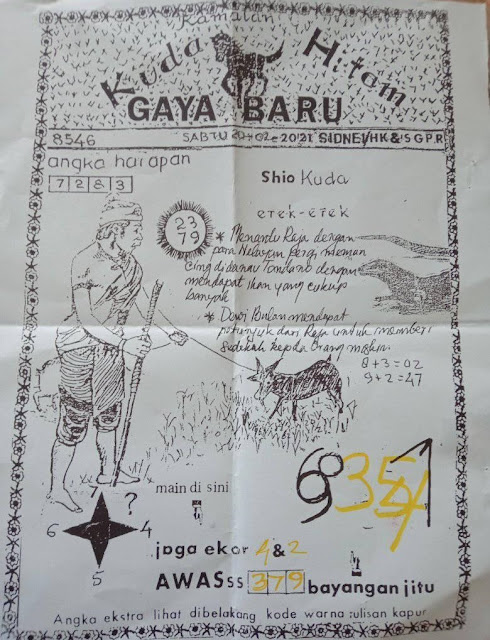 Ramalan
Kuda Hitam
GAYA BARU
8546 SABTU 20-02-2021 SIDNEY/HK&SGPR
angka harapan
7283
Shio Kuda
erek-erek
23
79
* Menantu Raja dengan
para Nelayan pergi meman
cing didanau Tondano dengan
mendapat ikan yang cukup
banyak
* Dewi Bulan mendapat
petunjuk dari Raja untuk memberi
sedekah kepda Orang miskin.
8+3=02
9+2=47
main di sini
7
?
6
4
5
jaga ekor 4 & 2
AWASss 379 bayangan jitu
Angka ekstra lihat dibelakang kode warna tulisan kapur